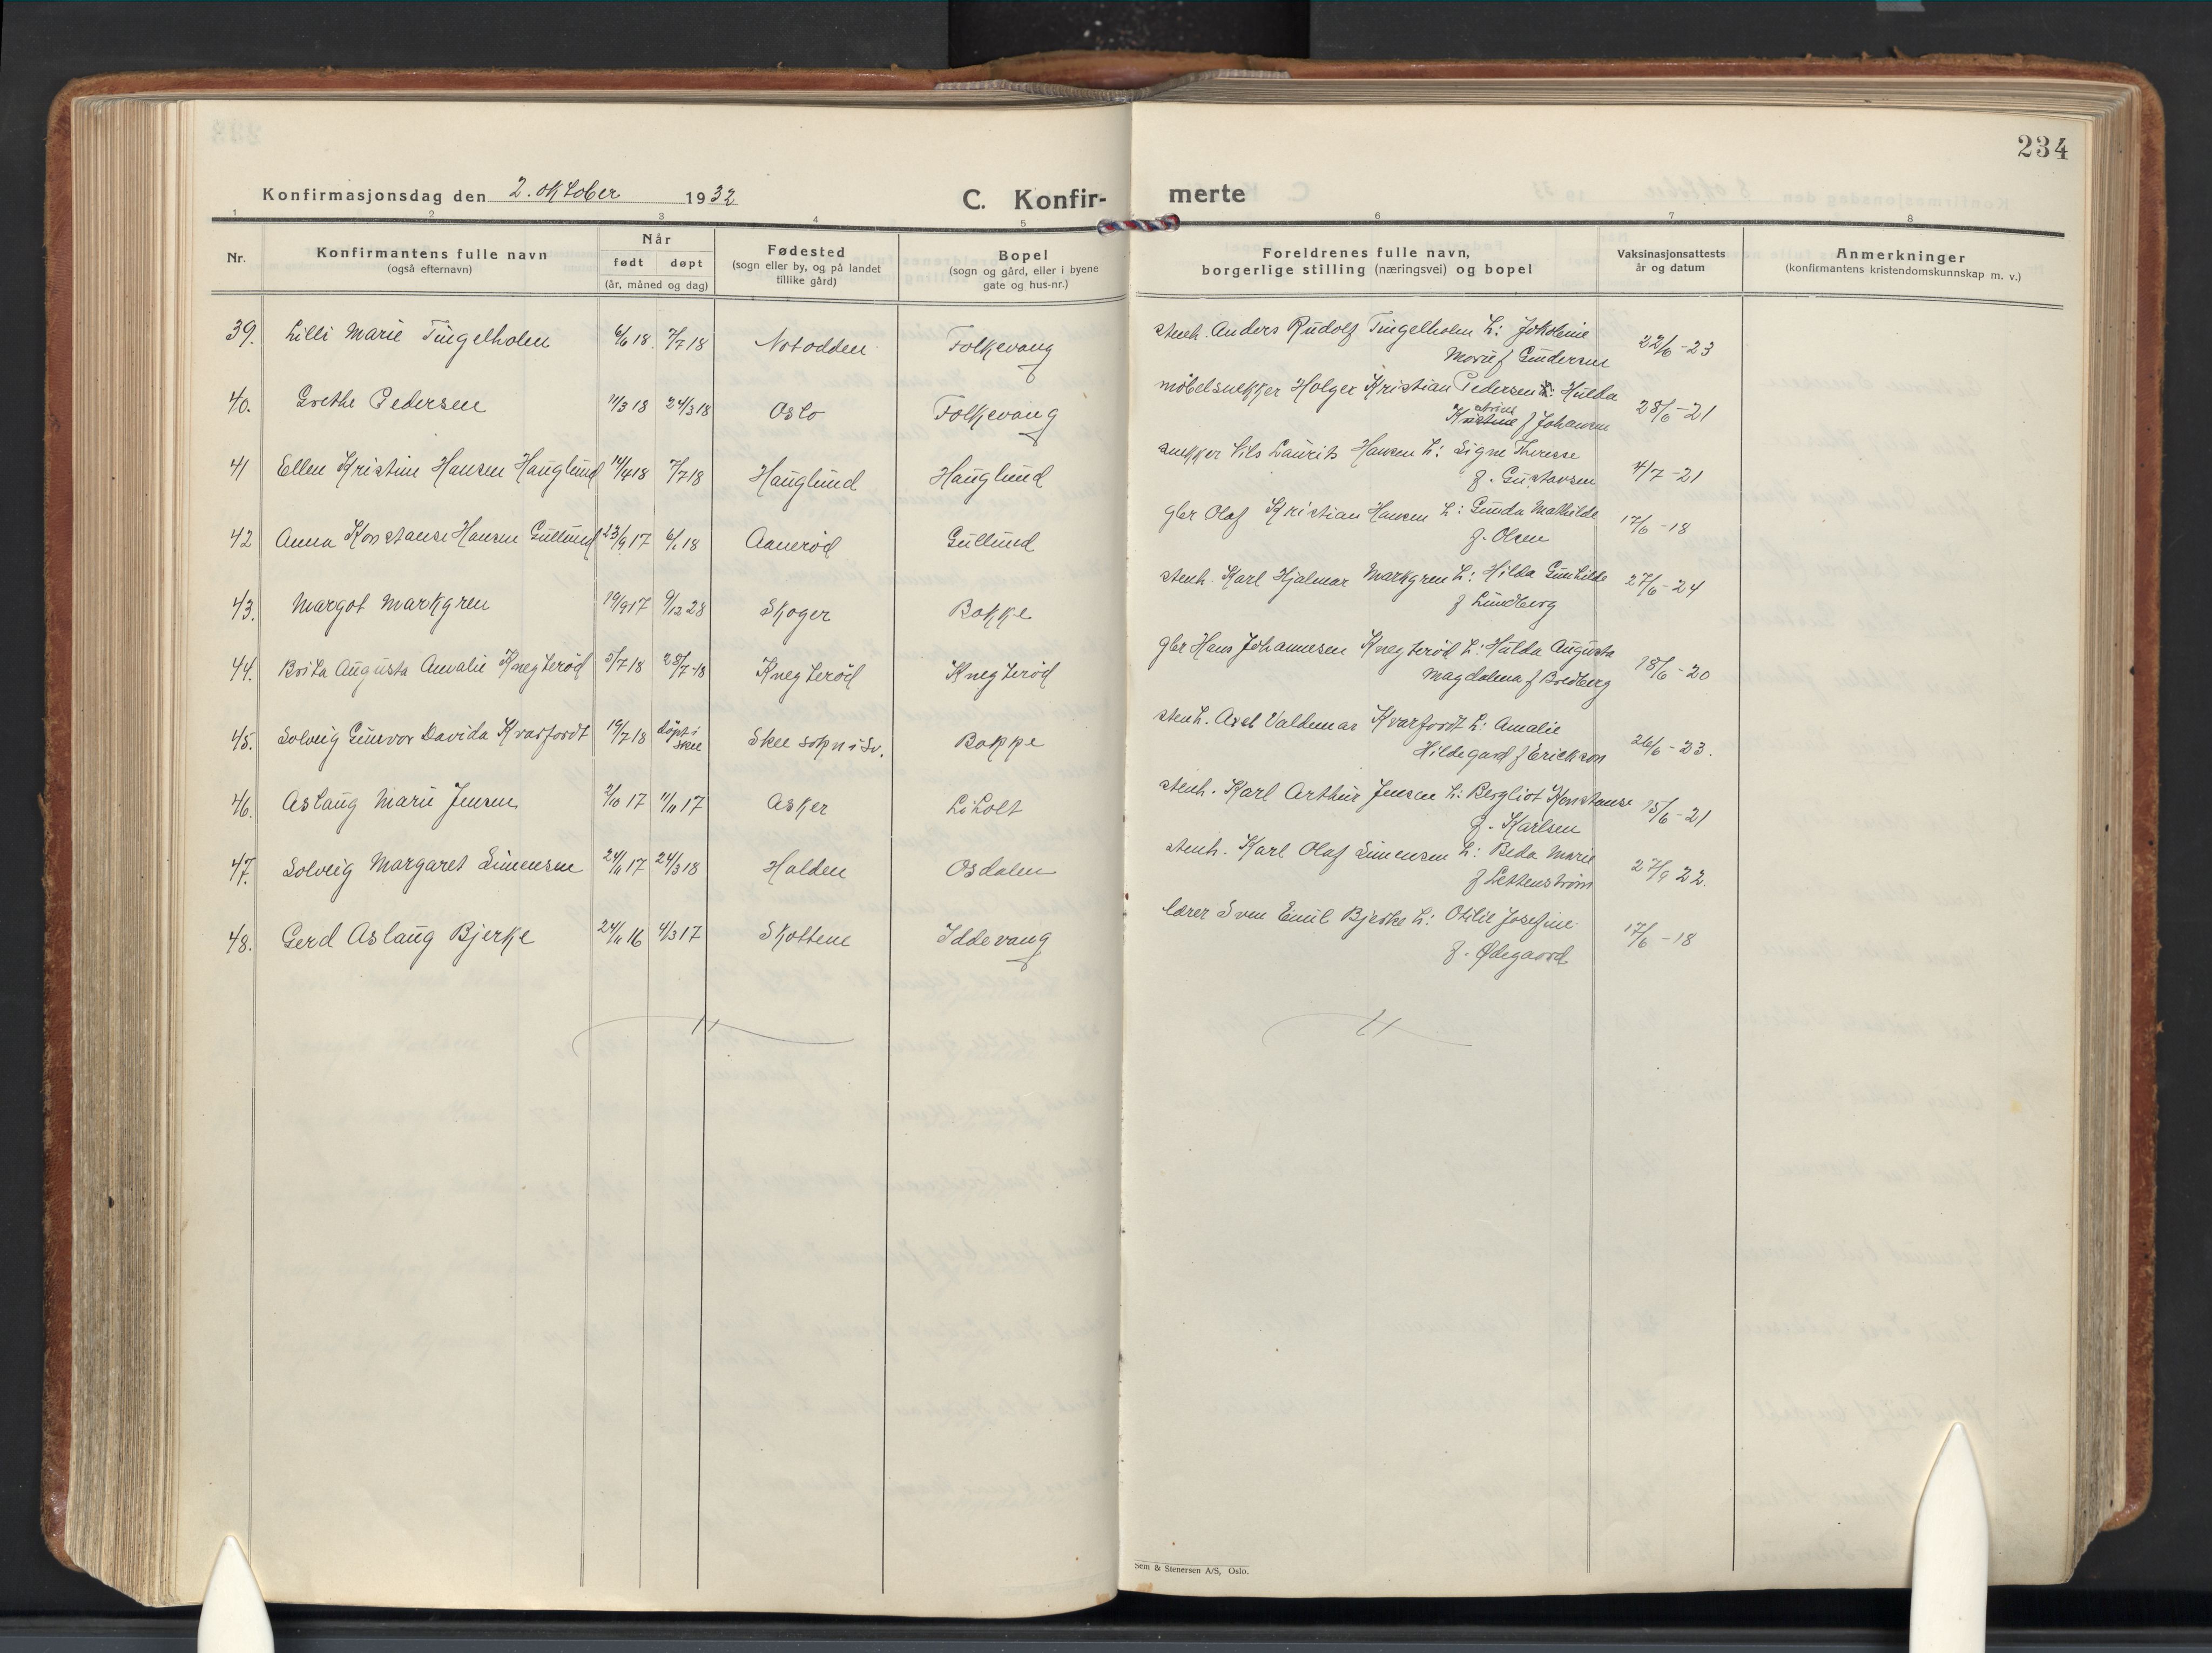 234
Konfirmasjonsdag den 2. oktober 1932
C. Konfir-
merte
1 2 3 4 5 6 7 8
Nr.
Konfirmantens fulle navn
(også efternavn)
Når
født døpt
(år, måned og dag)
Fødested
(sogn eller by, og på landet
tillike gård)
Bopel
(sogn og gård, eller i byene
gate og hus-nr.)
Foreldrenes fulle navn,
borgerlige stilling (næringsvei) og bopel
Vaksinasjonsattests
år og datum
Anmerkninger
(konfirmantens kristendomskunnskap m. v.)
39. Lilli Marie Tingelholm 6/6 18 7/7 18 Notodden Folkevang stenh. Anders Rudolf Tingelholm h: 22/6-23
Marie f Gundersen
40. Grethe Pedersen 11/3 18 24/3 18 Oslo Folkevang møbelsnekker Holger Kristian Pedersen h: Hulda 28/6-21
f Johansen
41 Ellen Kristine Hansen Hauglund 14/4 18 7/7 18 Hauglund Hauglund snekker Nils Laurits Hansen h: Signe Therese 4/7-21
f. Gustavsen
42 Anna Konstanse Hansen Gullund 23/9 17 6/1 18 Aanerød Gullund gbr Olaf Kristian Hansen h: Gunda Mathilde 17/6-18
f. Olsen
43. Margot Markgren 19/9 17 9/12 28 Skoger Bakke stenh. Karl Hjalmar Markgren h: Hilda Gunhilde 27/6-24
f Lundberg
44. Brita Augusta Amalie Knegterød 5/7 18 28/7-18 Knegterød Knegterød gbr Hans Johannesen Knegterød h: Hulda Augusta 18/6-20
Magdalena f Bredberg
45. Solveig Gunvor Davida Kvarfordt 19/7 18 døpt i Skee Skee sokn i Sv. Bakke stenh. Axel Valdemar Kvarfordt h: Amalie 26/6-23.
Hildegard f Erickson
46. Aslaug Marie Jensen 2/10 17 11/11 17 Asker Liholt stenh. Karl Arthur Jensen h: Bergliot Konstanse 15/6-21
f. Karlsen
47. Solveig Margaret Simensen 24/11 17 24/3 18 Halden Osdalen stenh. Karl Olaf Simensen h: Beda Marie 27/9 22.
f Lettenstrøm
48. Gerd Aslaug Bjerke 24/11 16 4/3 17 Skottene Iddevang lærer Sven Emil Bjerke h: Otilie Josefine 17/6-18
f. Ødegaard
Sem & Stenersen A/S, Oslo.